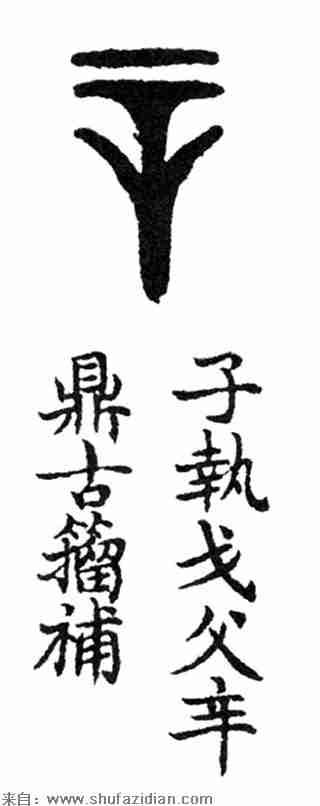 辛
子執戈父辛
鼎古籀補
来自：www.shufazidian.com